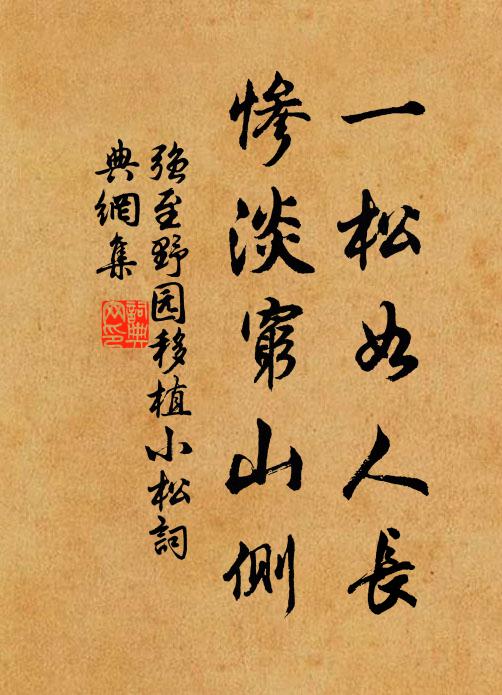 一松如人長
慘淡窮山側
強至野园移植小松詞
典網集
詞典網印